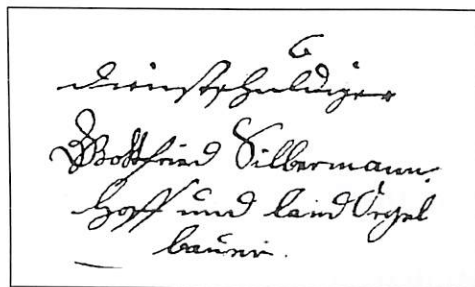 dienstschuldiger
Gottfried Silbermann.
Hoff und land Orgel
bauer.